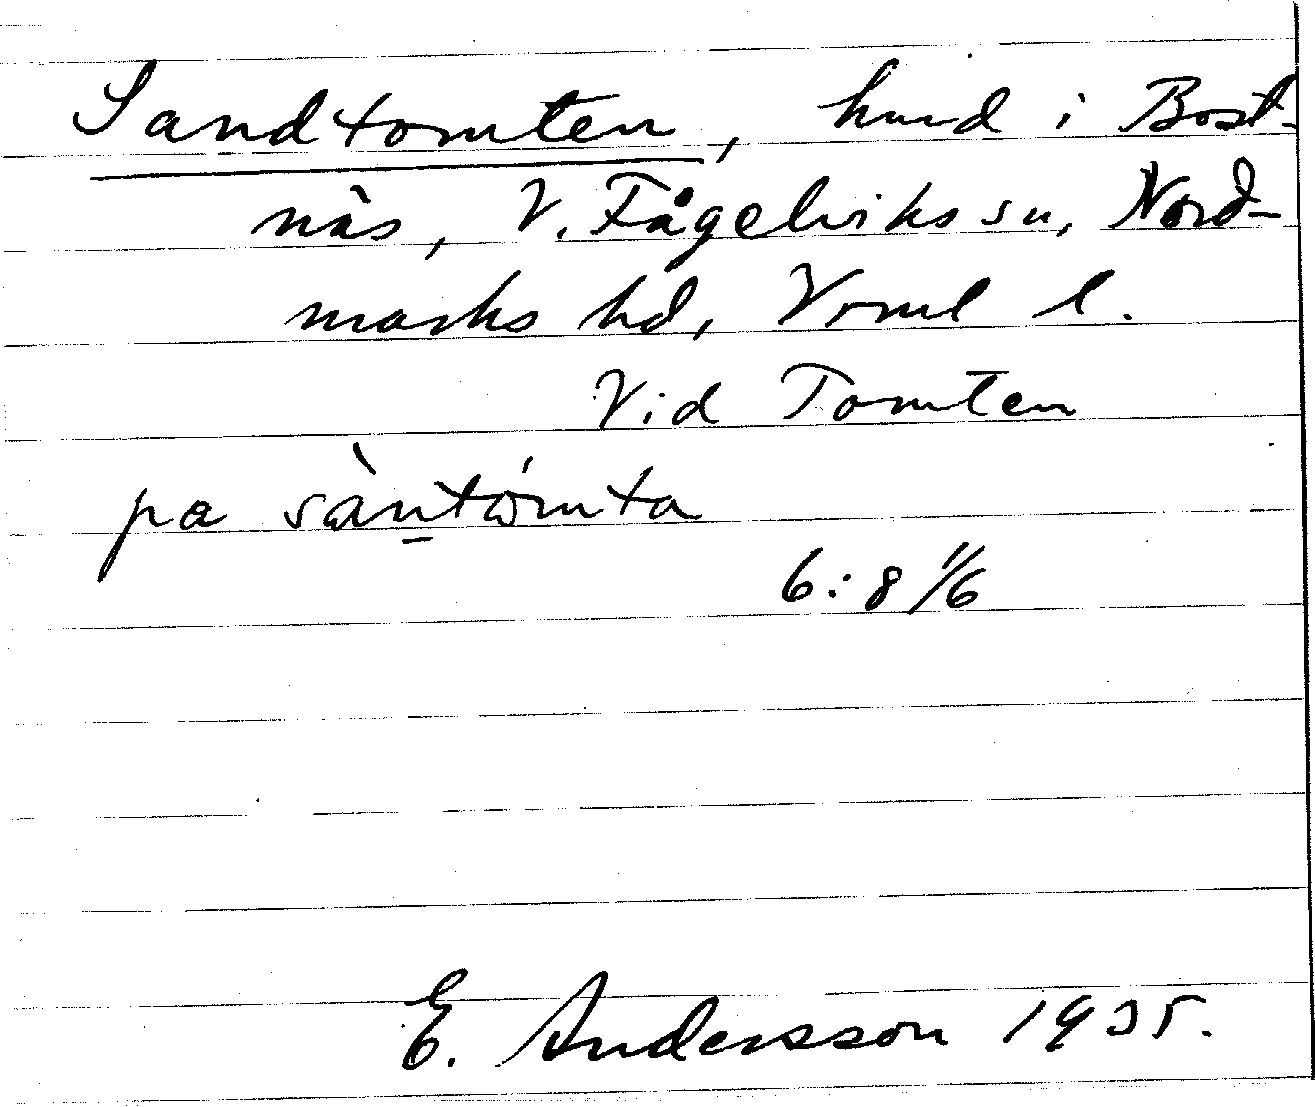 Sandtomten, hmd i Bost-
näs, V. Fågelviks sn, Nord-
marks hd, Vrml l.
Vid Tomten
pa sàntómta
6:8 11/6
E. Andersson 1935.